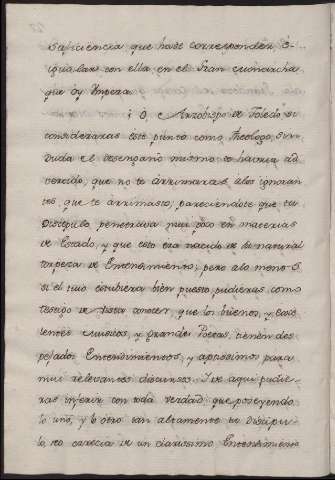 Sapiciencia que hase corresponder, ò
igualar con ella en el Gran Monarcha
que oy Impera.
¡O, Arzobispo de Toledo si
consideraras este punto como Theologo, sin
duda el desengaño mismo te havria ad
vertido, que no te arrimaras, a los ignoran
tes, que te arrimaste, pareciendote que tu
Discipulo penetrava mui poco en materias
de Estado, y que esto era nacido de su natural
torpeza de Entendimiento; pero alo menos
si el tuio estubiera bien puesto, pudieras como
testigo de vista conocer, que los buenos, y exce
lentes Musicos, y grandes Poetas, tienen des
pejados Entendimientos, y aptissimos para
mui relevantes discursos. I de aqui pudie
ras inferir con toda verdad que poseyendo
lo uno, y lo otro tan altamente tu Discipu
lo, no carecia de un clarissimo Entendimiento